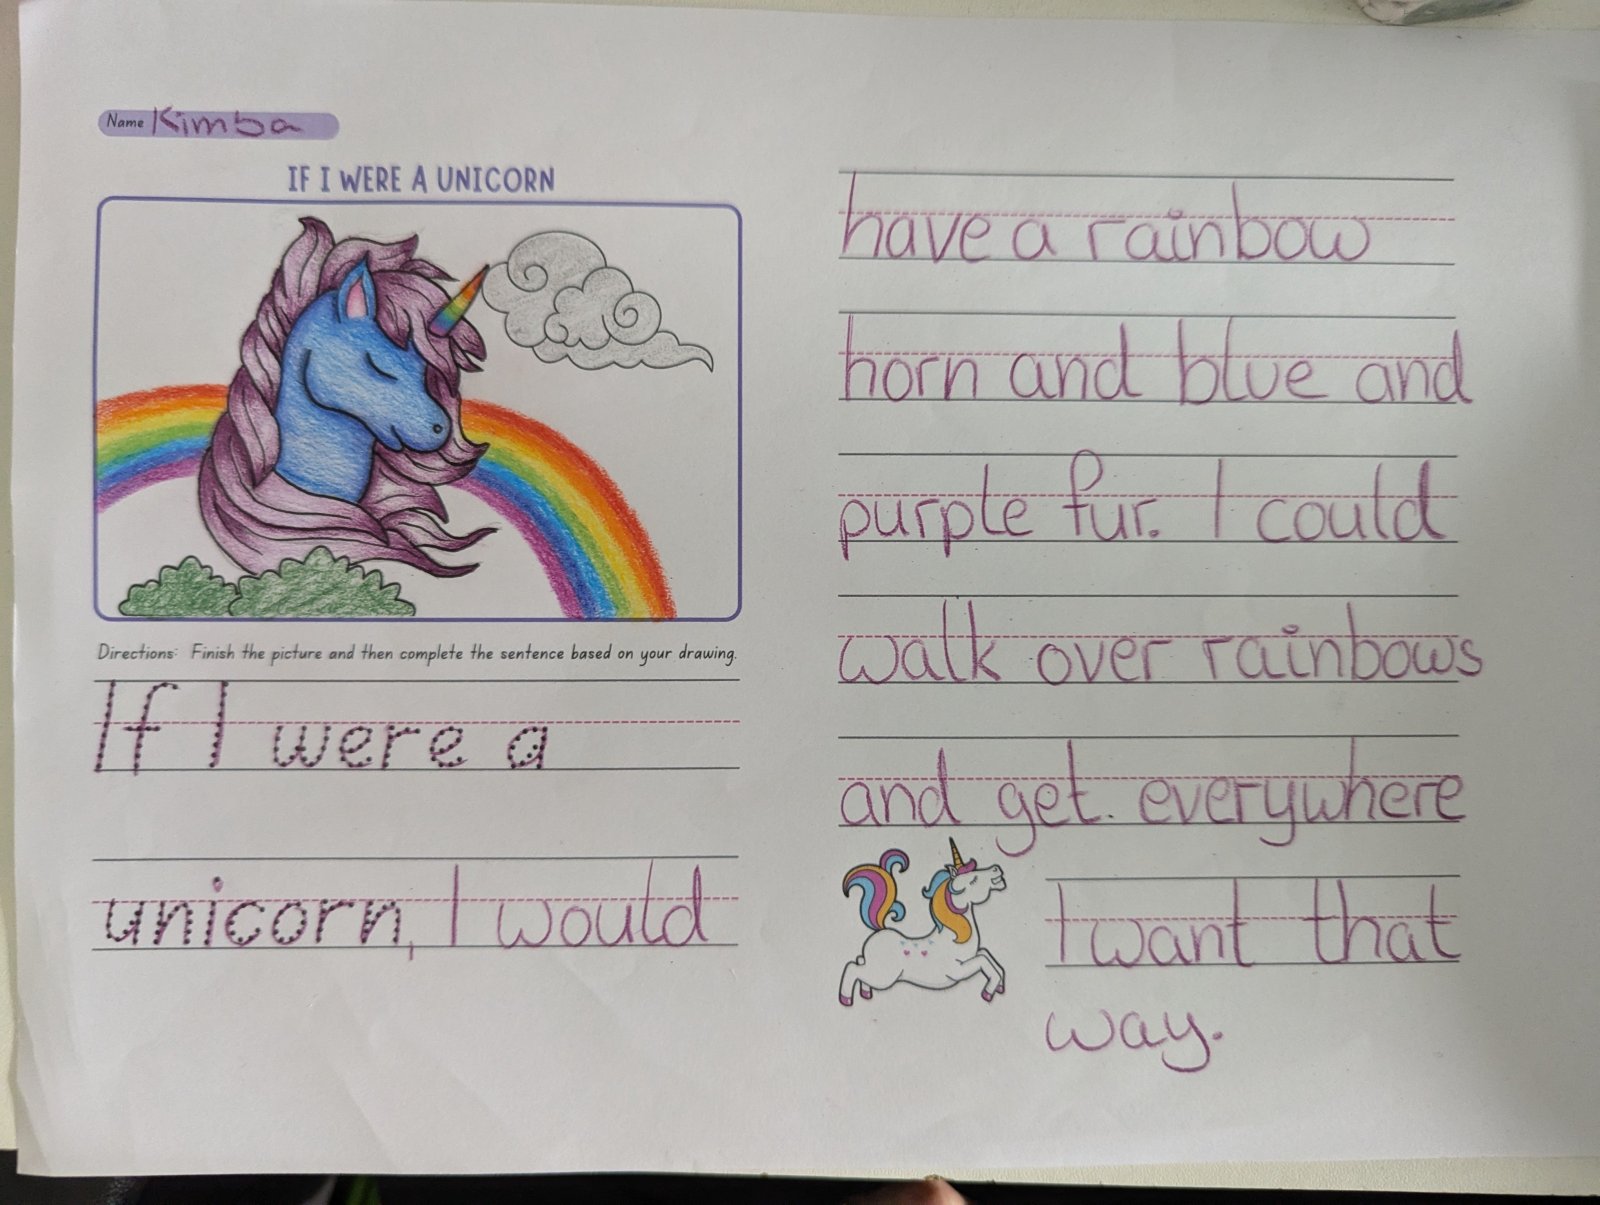 Name Kimba
IF I WERE A UNICORN
Directions: Finish the picture and then complete the sentence based on your drawing.
If I were a
unicorn, I would
have a rainbow
horn and blue and
purple fur. I could
walk over rainbows
and get. everywhere
I want that
way.